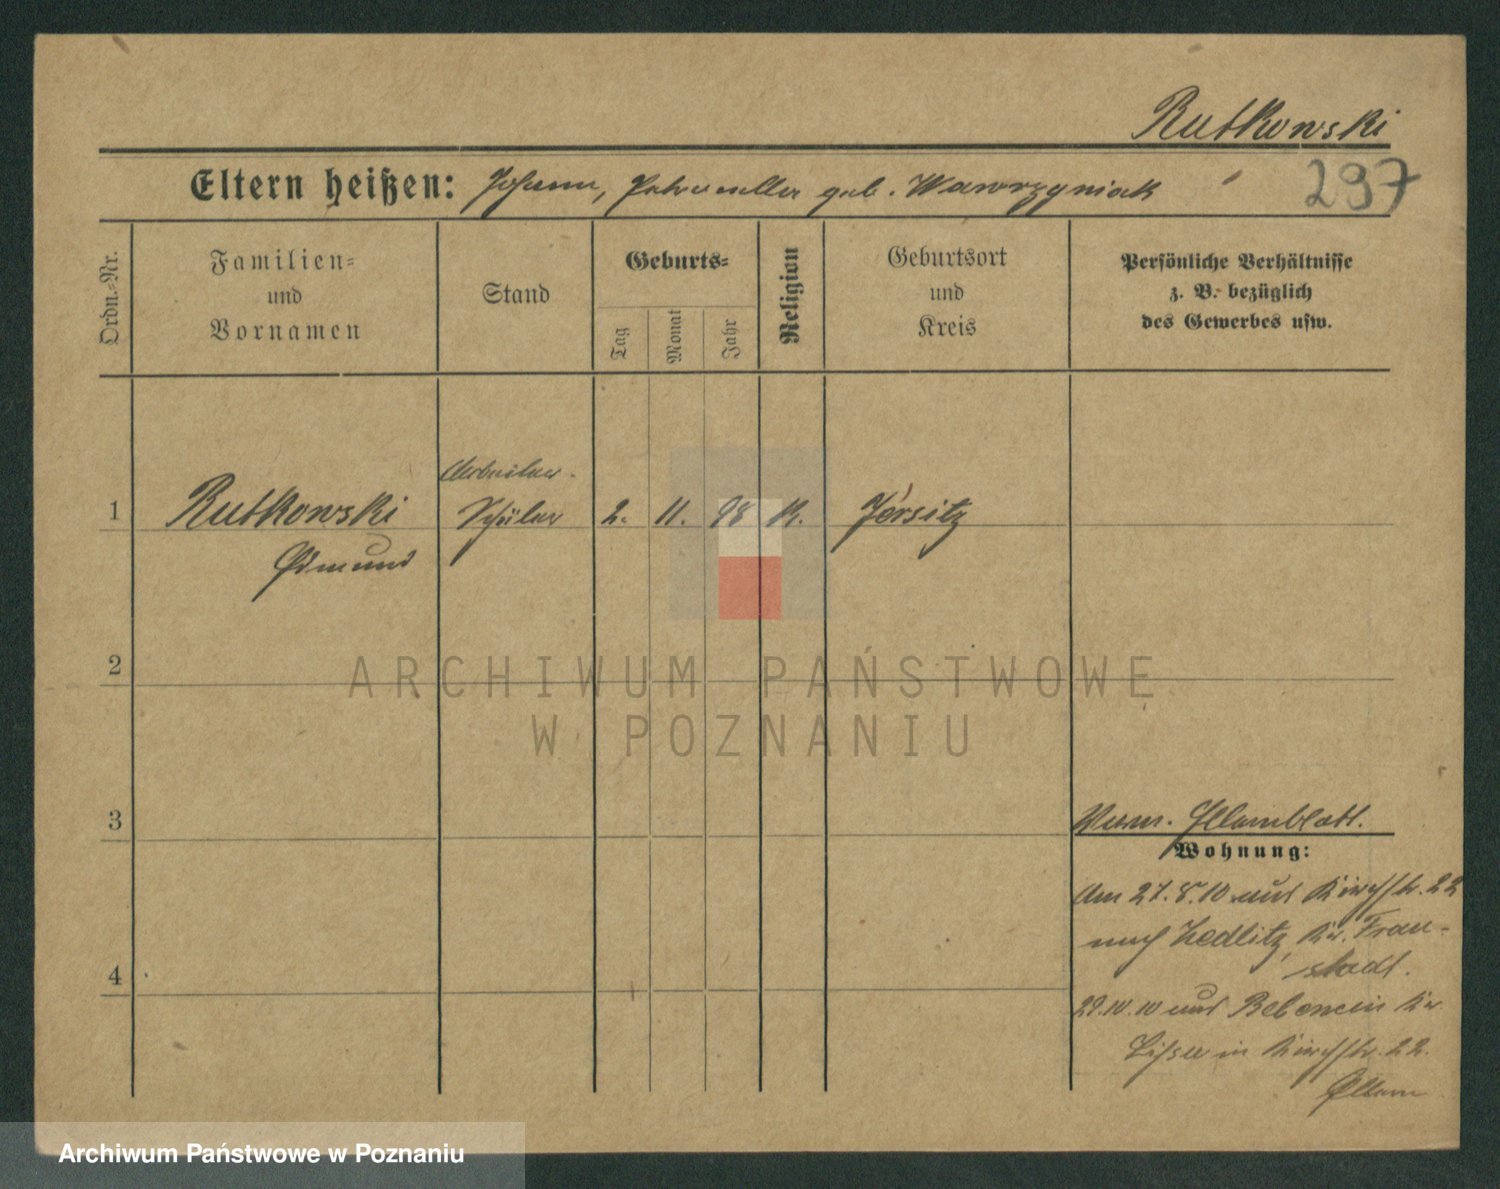 Rutkowski
Eltern heißen: Johann, Petronella geb. Wawrzyniak
297
Ordn.-Nr.
Familien-
und
Vornamen
Stand
Geburts-
Tag
Monat
Jahr
Religion
Geburtsort
und
Kreis
Persönliche Verhältnisse
z. B. bezüglich
des Gewerbes usw.
Arbeiter.
1 Rutkowski Schüler 2. 11. 98 K. Jersitz
Edmund
2
3
4
Verm. Elternblatt.
Wohnung:
Am 27.8.10 aus Kirchstr. 22
nach Zedlitz, Kr. Frau-
stadt.
29.10.10 aus Kr
Lissa in Kirchstr. 22.
Eltern
ARCHIWUM PAŃSTWOWE
W POZNANIU
Archiwum Państwowe w Poznaniu